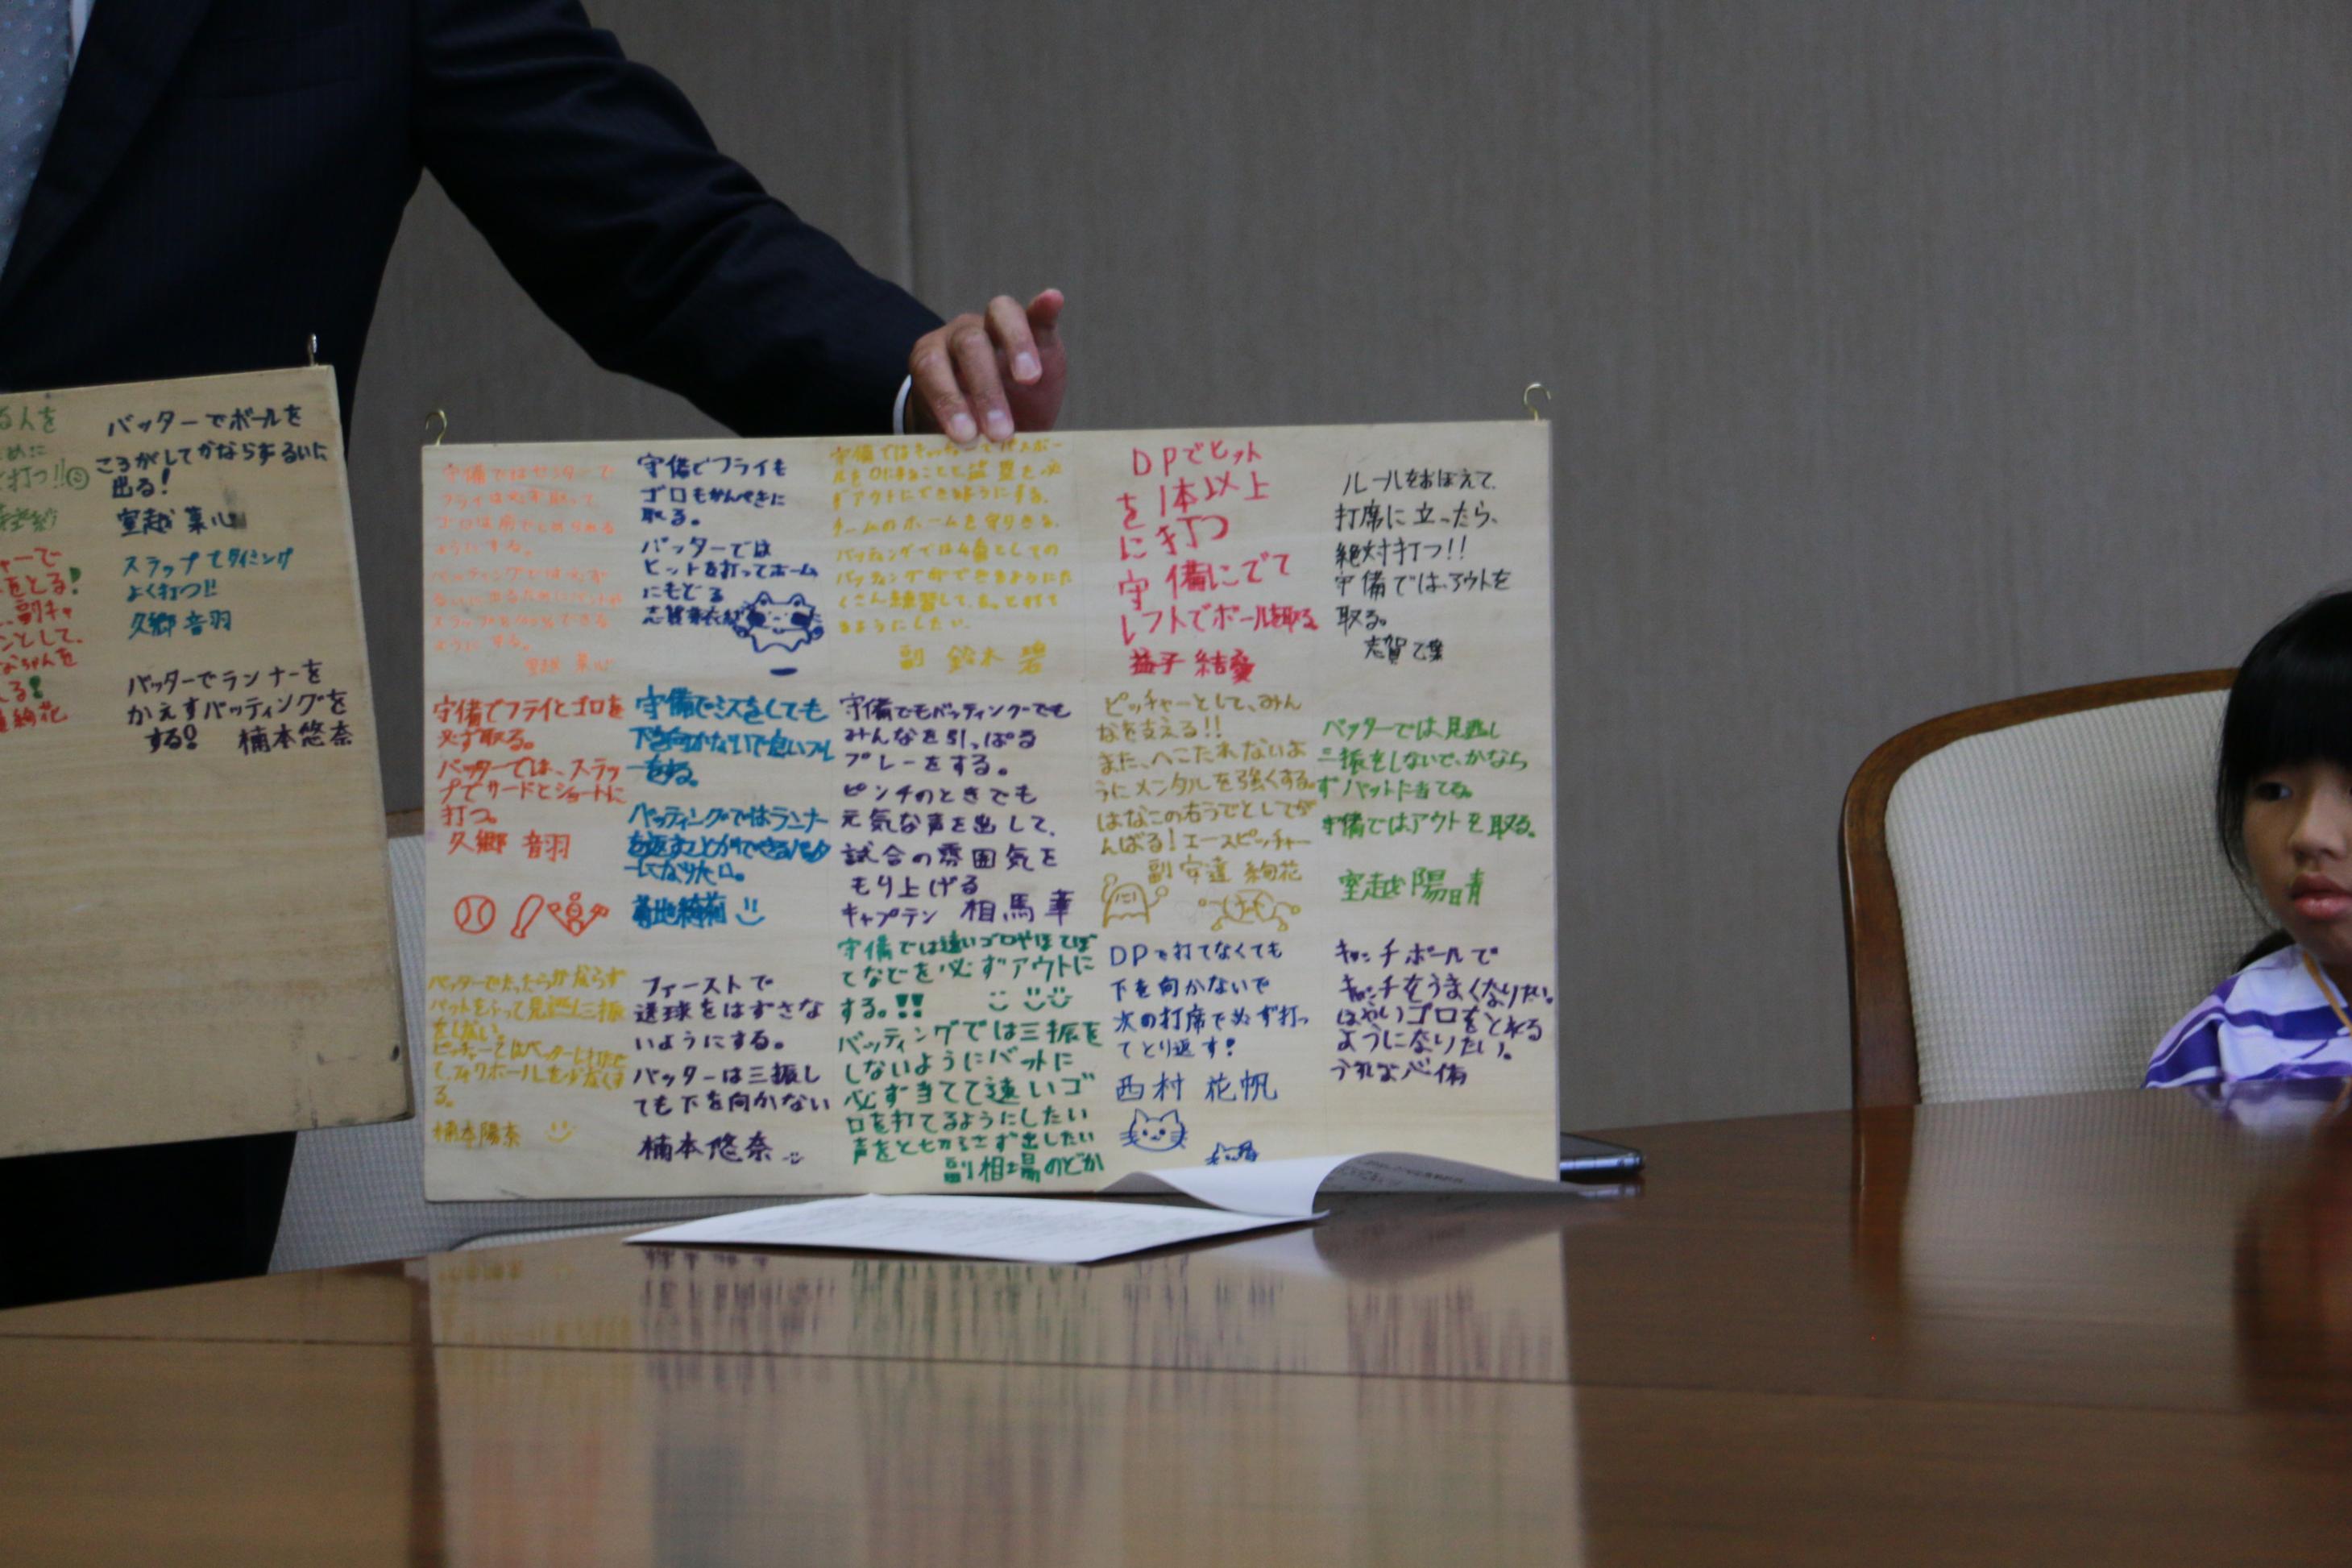 るんを
めに
打つ!!
バッターでボールを
ころがしてかならずるいに
出る!
室越
スラップでタイミング
よく打つ!!
久郷音羽
バッターでランナーを
かえすバッティングを
する!
楠本悠奈
ャーで
をとる!
副キャ
ンとして、
ちゃんを
る!
絢花
守備ではセンターで
フライは必ず取って、
ようにする。
ようにする。
守備でフライも
ゴロもかんぺきに
取る。
バッターでは
ヒットを打ってホーム
にもどる
志賀
守備ではキャッチーでパスボー
ルを0にすることと盗塁を必
ずアウトにできるようにする。
チームのホームを守りきる。
バッティングでは4番としての
バッティングができるようにた
くさん練習して、もっと打て
るようにしたい。
副 鈴木 碧
DPでヒット
を1本以上
に打つ
守備にでて
レフトでボールを取る
益子 結愛
ルールをおぼえて、
打席に立ったら、
絶対打つ!!
守備では、アウトを
取る。
志賀 乙葉
守備でフライとゴロを
必ず取る。
バッターでは、スラッ
プでサードとショートに
打つ。
久郷 音羽
守備でミスをしても
下を向かないで良いプレ
ーをする。
バッティングではランナー
を返すことができるバッタ
ーになりたい。
菊地
守備でもバッティングでも
みんなを引っぱる
プレーをする。
ピンチのときでも
元気な声を出して、
試合の雰囲気を
もり上げる
キャプテン 相馬 華
ピッチャーとして、みん
なを支える!!
また、へこたれないよ
うにメンタルを強くする。
はなこの右うでとしてが
んばる!エースピッチャー
副 安達 絢花
バッターでは見逃し
三振をしないで、かなら
ずバットに当てる。
守備ではアウトを取る。
室越 陽晴
バッターでたったらかならず
バットをふって見逃し三振
をしない。
る。
楠本陽奈
ファーストで
送球をはずさな
いようにする。
バッターは三振し
ても下を向かない
楠本悠奈
守備では速いゴロやぼてぼ
てなどを必ずアウトに
する。!!
バッティングでは三振を
しないようにバットに
必ず当てて速いゴ
ロを打てるようにしたい
声をとぎらさず出したい
副 相場のどか
DPで打てなくても
下を向かないで
次の打席で必ず打っ
てとり返す!
西村 花帆
キャッチボールで
キャッチをうまくなりたい。
はやいゴロをとれる
ようになりたい。